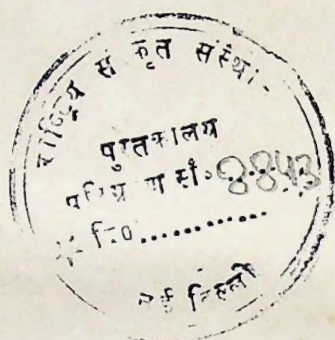 राष्ट्रिय संस्कृत संस्थान
पुस्तकालय
परिग्रहण सं० 8843
दि०..............
नई दिल्ली